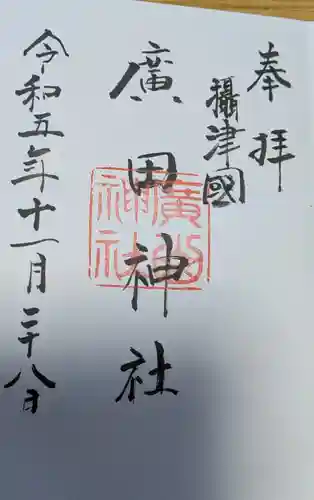 奉拝
攝津國
廣田神社
令和五年十一月二十八日
廣田
神社